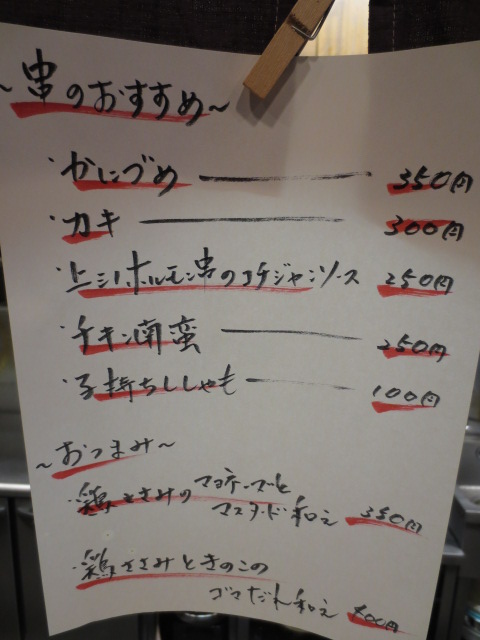 ~串のおすすめ~
・かにづめ 350円
・カキ 300円
・上シロホルモン串のコチジャンソース 250円
・チキン南蛮 250円
・子持ちししゃも 100円
~おつまみ~
・鶏ささみのマヨネーズと
マスタード和え 350円
・鶏ささみときのこの
ゴマだれ和え 円